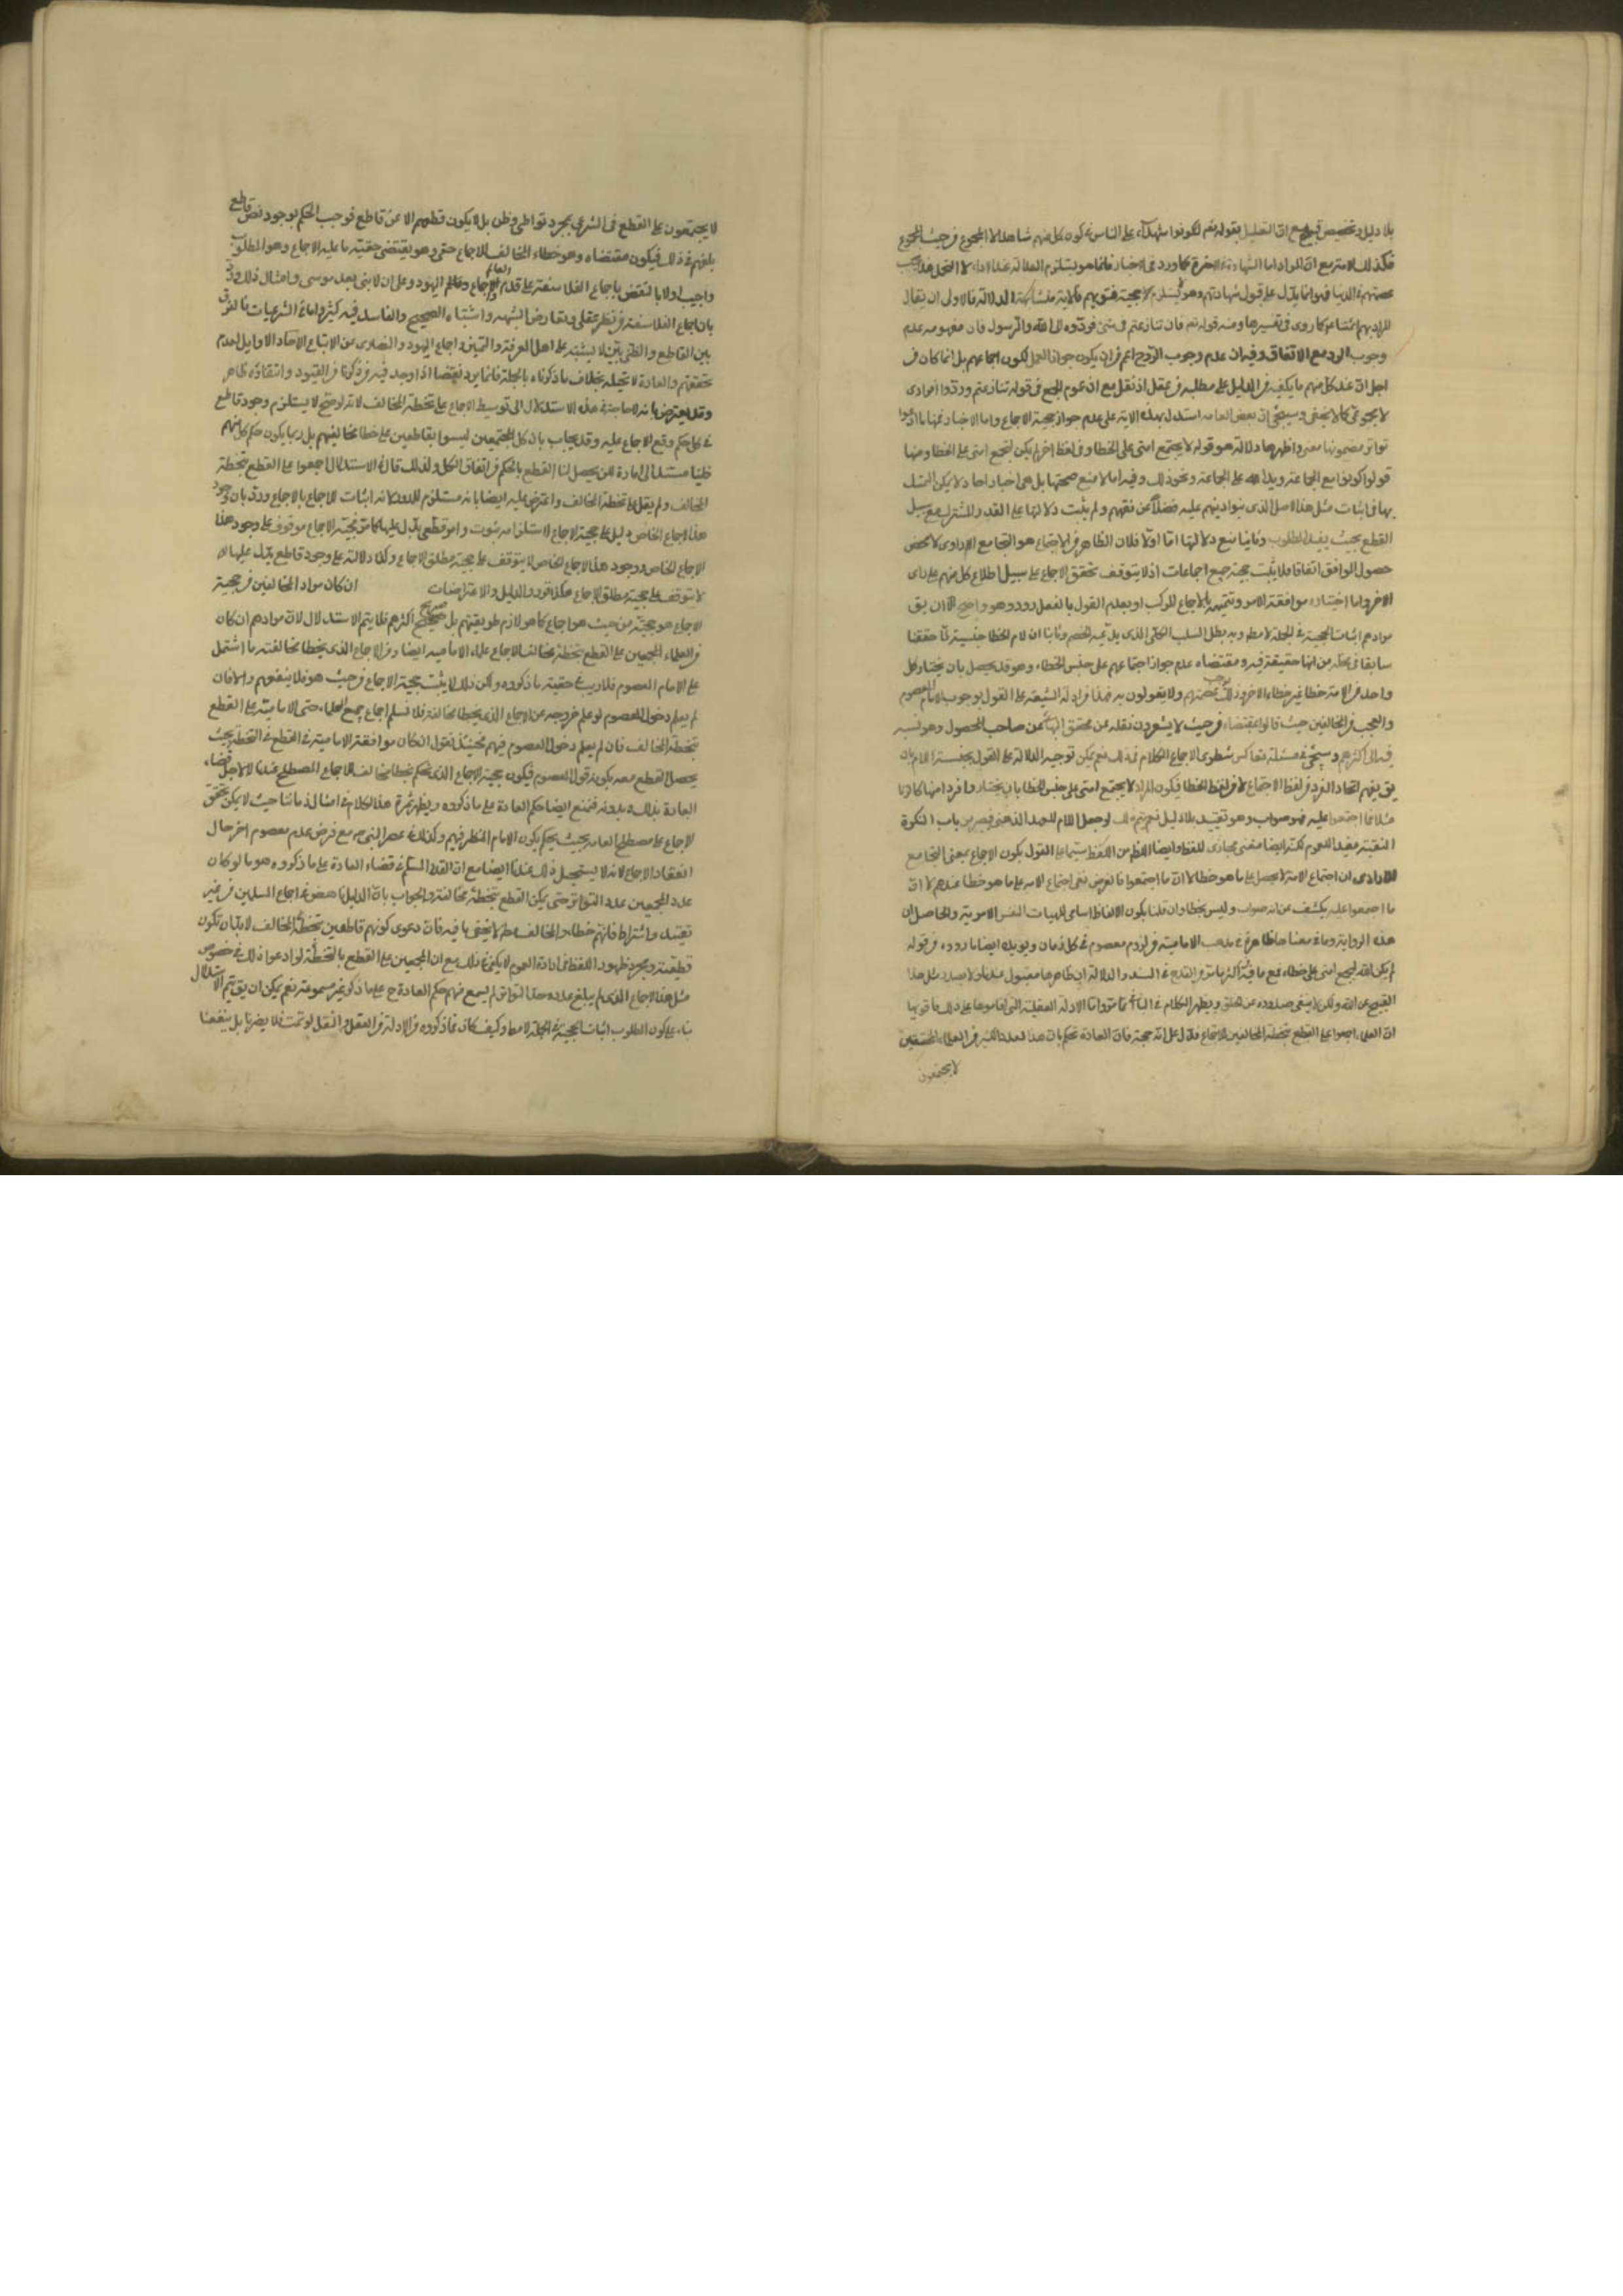 بلا دليل وتخصيص قبيح مع ان التعليل بقوله تعم لتكونوا شهداء على الناس كون كل منهم شاهدا لا المجموع من حيث المجموع
فكذلك الامة مع ان المراد اما الشهادة في الاخرة كما ورد في الاخبار فانما هو يستلزم العدالة عند الاداء لا التحمل
عصمتهم في الدنيا فهو انما يدل على قبول شهادتهم وهو لا يستلزم حجية فتويهم فالاية متشابهة الدلالة فالاولى ان يقال
المراد بهم ائمتنا عم كما روى في تفسيرها ومنه قوله تعم فان تنازعتم في شئ فردوه الى الله والرسول فان مفهومه عدم
وجوب الرد مع الاتفاق وفيه ان عدم وجوب الرد ح اعم من ان يكون جواز العمل لكون اجماعهم بل انما كان من
اجل ان عند كل منهم ما يكفيه من الدليل على مطلبه من عقل او نقل مع ان عموم الجمع في قوله تنازعتم وردوا افرادى
لا مجوعى كما لا يخفى وسيجئ ان بعض العامة استدل بهذه الاية على عدم جواز حجية الاجماع واما الاخبار فمنها ما ادعوا
تواتر مضمونها معنى واظهرها دلالة هو قوله لا يجتمع امتى على الخطا وفى لفظ اخر لم يكن لتجتمع امتى على الخطا ومنها
قوله كونوا مع الجماعة ويد الله على الجماعة ونحو ذلك وفيه اما لا منع صحتها بل هى اخبار احاد لا يمكن التمسك
بها في اثبات مثل هذا الاصل الذى بنوا دينهم عليه فضلا عن فقههم ولم يثبت دلالتها على القدر المشترك على سبيل
القطع بحيث يفيد المطلوب وثانيا منع دلالتها اما اولا فلان الظاهر من الاجتماع هو التجامع الارادى لا محض
حصول الوافق اتفاقا فلا يثبت حجية جميع اجماعات اذ لا يتوقف تحقق الاجماع على سبيل اطلاع كل منهم على راى
الاخر واما اختياره موافقة الامر وتتميمه بالاجماع المركب او بعدم القول بالفصل دور وهو واضح الا ان يق
مرادهم اثبات الحجية في الجملة لا مطلقا وبه يبطل السلب الكلى الذى يدعيه الخصم وثانيا ان لام الخطا جنسية لما حققنا
سابقا في محله من انها حقيقة فيه ومقتضاه عدم جواز اجتماعهم على جنس الخطاء وهو قد يحصل بان يختار كل
واحد من الامة خطا غير خطاء الاخر وذلك يوجب عصمتهم ولا يقولون به فهذا من ادلة الشيعة على القول بوجوب الامام المعصوم
والعجب من المخالفين حيث قالوا بمقتضاه من حيث لا يشعرون نقله عن محقق البهائى عن صاحب المحصول وهو نسبه
فيه الى اكثرهم وسيجئ في مسئلة تعاكس شطرى الاجماع الكلام في ذلك نعم يمكن توجيه الدلالة على القول بجنسية اللام بان
يق يفهم اتحاد الفرد من لفظ الاجتماع لا من لفظ الخطا فيكون المراد لا يجتمع امتى على جنس الخطا بان يختاروا فردا منها كالزنا
مثلا فما اجتمعوا عليه فهو صواب وهو تقييد بلا دليل نعم يتم ذلك لو جعل اللام للعهد الذهنى فيصير من باب النكرة
المنفية مفيد للعموم لكنه ايضا معنى مجازى للفظ وايضا الظاهر من اللفظ سيما على القول بكون الاجماع بمعنى التجامع
الارادى ان اجتماع الامة لا يحصل على ما هو خطا لا ان ما اجتمعوا فالغرض نفى اجتماع الامة على ما هو خطا عندهم لا ان
ما اجمعوا عليه يكشف عن انه صواب وليس بخطا وان قلنا بكون الالفاظ اسامى للمهيات النفس الامرية والحاصل ان
هذه الرواية وما في معناها ظاهرة في مذهب الامامية من لزوم معصوم في كل زمان ويويده ايضا ما رووه من قوله
لم يكن الله ليجمع امتى على خطاء فمع ما فيه اكثر ما مر والقدح في السند والدلالة ان ظاهرها مقبول عندنا ولا يصدر مثل هذا
القبيح عن الله ولكن لا ينفى صدوره عن الخلق ويظهر الكلام في الباقى مما مر واما الادلة العقلية التى اقاموها على ذلك فاقويها
ان العلماء اجمعوا على القطع بتخطئة المخالفين للاجماع فدل على انه حجة فان العادة تحكم بان هذا العدد الكثير من العلماء المحققين
لا يجتمعون
لا يجتمعون على القطع في الشرعى بمجرد تواطى وظن بل لا يكون قطعهم الا عن قاطع فوجب الحكم بوجود نص قاطع
بلغهم في ذلك فيكون مقتضاه وهو خطاء المخالف للاجماع حتى وهو يقتضى حقية ما عليه الاجماع وهو المطلوب
واجيب اولا بالنقض باجماع الفلاسفة على قدم العالم واجماع اليهود على ان لا نبى بعد موسى وامثال ذلك ورد
بان اجماع الفلاسفة من نظر عقلى وتعارض الشبهة واشتباه الصحيح والفاسد فيه كثير واما في الشرعيات فالفرق
بين القاطع والظنى بين لا يشتبه على اهل المعرفة والتميز واجماع اليهود والنصارى عن الاتباع لاحاد الاوايل لعدم
تحققهم والعادة لا تحيله بخلاف ما ذكرناه بالجملة فانما يرد نقضا اذا وجد فيه ما ذكرنا من القيود وانتفاؤه ظاهر
وقد يعترض بانه لا حاجة في هذه الاستدلال الى توسيط الاجماع على تخطئة المخالف لانه لو صح لا يستلزم وجود قاطع
في كل حكم وقع الاجماع عليه وقد يجاب بان كل المجتمعين ليسوا بقاطعين على خطا مخالفيهم بل ربما يكون حكم كل منهم
ظنيا مستندا الى امارة لكن يحصل لنا القطع بالحكم من اتفاق الكل ولذلك قال في الاستدلال اجمعوا على القطع بتخطئة
المخالف ولم يقل على تخطئة المخالف واعترض عليه ايضا بانه مستلزم للدور لانه اثبات للاجماع بالاجماع ورد بان وجود
هذا الاجماع الخاص دليل على حجية الاجماع لاستلزامه ثبوت وامر قطعى يدل عليها كما مر فحجية الاجماع موقوف على وجود هذا
الاجماع الخاص ووجود هذا الاجماع الخاص لا يتوقف على حجية مطلق الاجماع وكذا دلالته على وجود قاطع يدل عليها لا
لا يتوقف على حجية مطلق الاجماع هكذا قرر والدليل والاعتراضات ان كان مراد المخالفين من حجية
الاجماع هو حجيته من حيث هو اجماع كما هو لازم طريقتهم بل صريح اكثرهم فلا يتم الاستدلال لان مرادهم ان كان
من العلماء المجمعين على القطع بتخطئة مخالف الاجماع علماء الامامية ايضا ومن الاجماع الذى يخطا مخالفته ما اشتمل
على الامام المعصوم فلا ريب في حقية ما ذكروه ولكن ذلك لا يثبت حجية الاجماع من حيث هو فلا ينفعهم والا فان
لم يعلم دخول المعصوم لو علم خروجه عن الاجماع الذى يخطا مخالفته فلا نسلم اجماع جميع العلماء حتى الامامية على القطع
بتخطئة المخالف فان لم يعلم دخول المعصوم فيهم فحينئذ نقول ان كان موافقة الامامية في القطع في التخطئة بحيث
يحصل القطع معه بكونه قول المعصوم فيكون حجية الاجماع الذى نحكم بخطا مخالف الاجماع المصطلح عندنا لا لاجل قضاء
العادة بذلك وبدونه فنمنع ايضا حكم العادة على ما ذكروه ويظهر ثمرة هذا الكلام في امثال زماننا حيث لا يمكن تحقق
الاجماع على مصطلح العامة بحيث يحكم بكون الامام المنتظر فيهم وكذلك في عصر النبى ص مع فرض عدم معصوم اخر حال
انعقاد الاجماع لانه لا يستحيل ذلك عندنا ايضا مع ان القدر المسلم في قضاء العادة على ما ذكروه هو ما لو كان
عدد المجمعين عدد التواتر حتى يمكن القطع بتخطئة مخالفته والجواب بان الدليل ناهض في اجماع المسلمين من غير
تقييد واشتراط فانهم خطاوا المخالف مطلقا لا يخفى ما فيه فان دعوى كونهم قاطعين بتخطئة المخالف لا بد ان تكون
قطعية ومجرد ظهور اللفظ في ارادة العموم لا يكفى في ذلك مع ان المجمعين على القطع بالتخطئة لو ادعوا ذلك في خصوص
مثل هذا الاجماع الذى لم يبلغ عدده حد التواتر لم يسمع منهم حكم العادة ح على ما ذكر غير مسموعة نعم يمكن ان يق يتم الاستدلال
بناء على كون المطلوب اثبات الحجية في الجملة لا مطلقا وكيف كان فما ذكروه من الادلة من العقل والنقل لو تمت فلا يضرنا بل ينفعنا